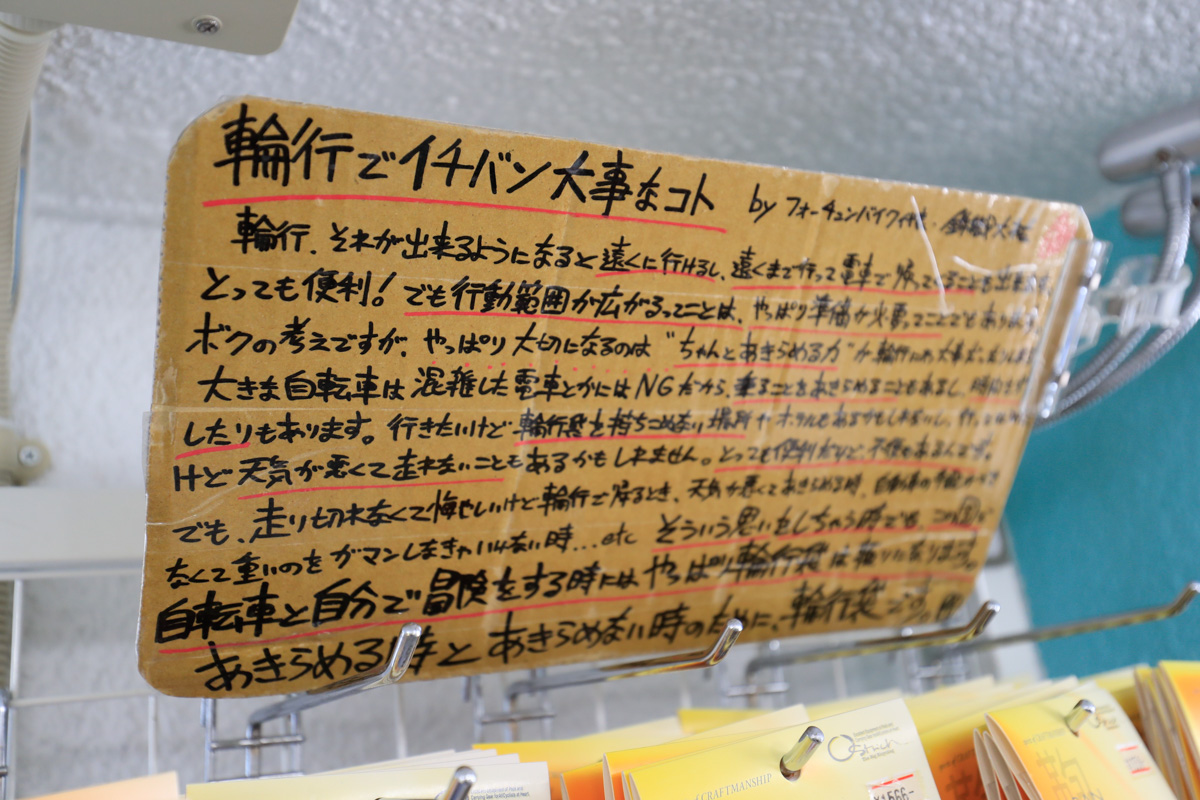 輪行でイチバン大事なコト by フォーチュンバイク
輪行、それが出来るようになると遠くに行けるし、遠くまで行って電車で帰ってくることも出来
とっても便利！でも行動範囲が広がるってことは、やっぱり準備が必要ってことでもあり
ボクの考えですが、やっぱり大切になるのは“ちゃんとあきらめる力”が輪行には大事だ
大きな自転車は混雑した電車とかにはNGだから、乗ることをあきらめることもあるし、時間を
したりもあります。行きたいけど輪行袋を持ちこめない場所やホテルもあるかもしれないし、
けど天気が悪くて走れないこともあるかもしれません。とっても便利だけど、不便もあるんです。
でも、走り切れなくて悔やしいけど輪行で帰るとき、天気が悪くてあきらめる時、自転車の
なくて重いのをガマンしなきゃいけない時...etc そういう思いをしちゃう時でも、この
自転車と自分で冒険をする時にはやっぱり輪行袋は頼りになります。
あきらめる時とあきらめない時のために、輪行袋です。
CRAFTMANSHIP
Ostrich
¥1566-